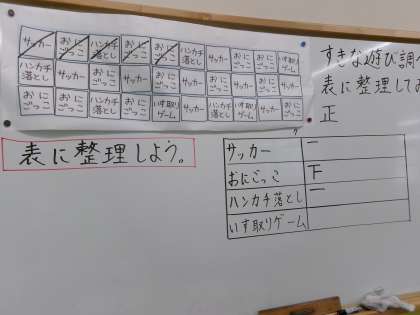 サッカー おにごっこ ハンカチ落とし おにごっこ おにごっこ サッカー おにごっこ おにごっこ いす取りゲーム
ハンカチ落とし サッカー おにごっこ サッカー おにごっこ ハンカチ落とし サッカー おにごっこ サッカー
ハンカチ落とし おにごっこ おにごっこ おにごっこ いす取りゲーム サッカー ハンカチ落とし いす取りゲーム サッカー おにごっこ
すきな遊び調
表に整理して
正
表に整理しよう。
サッカー 一
おにごっこ 下
ハンカチ落とし 一
いす取りゲーム